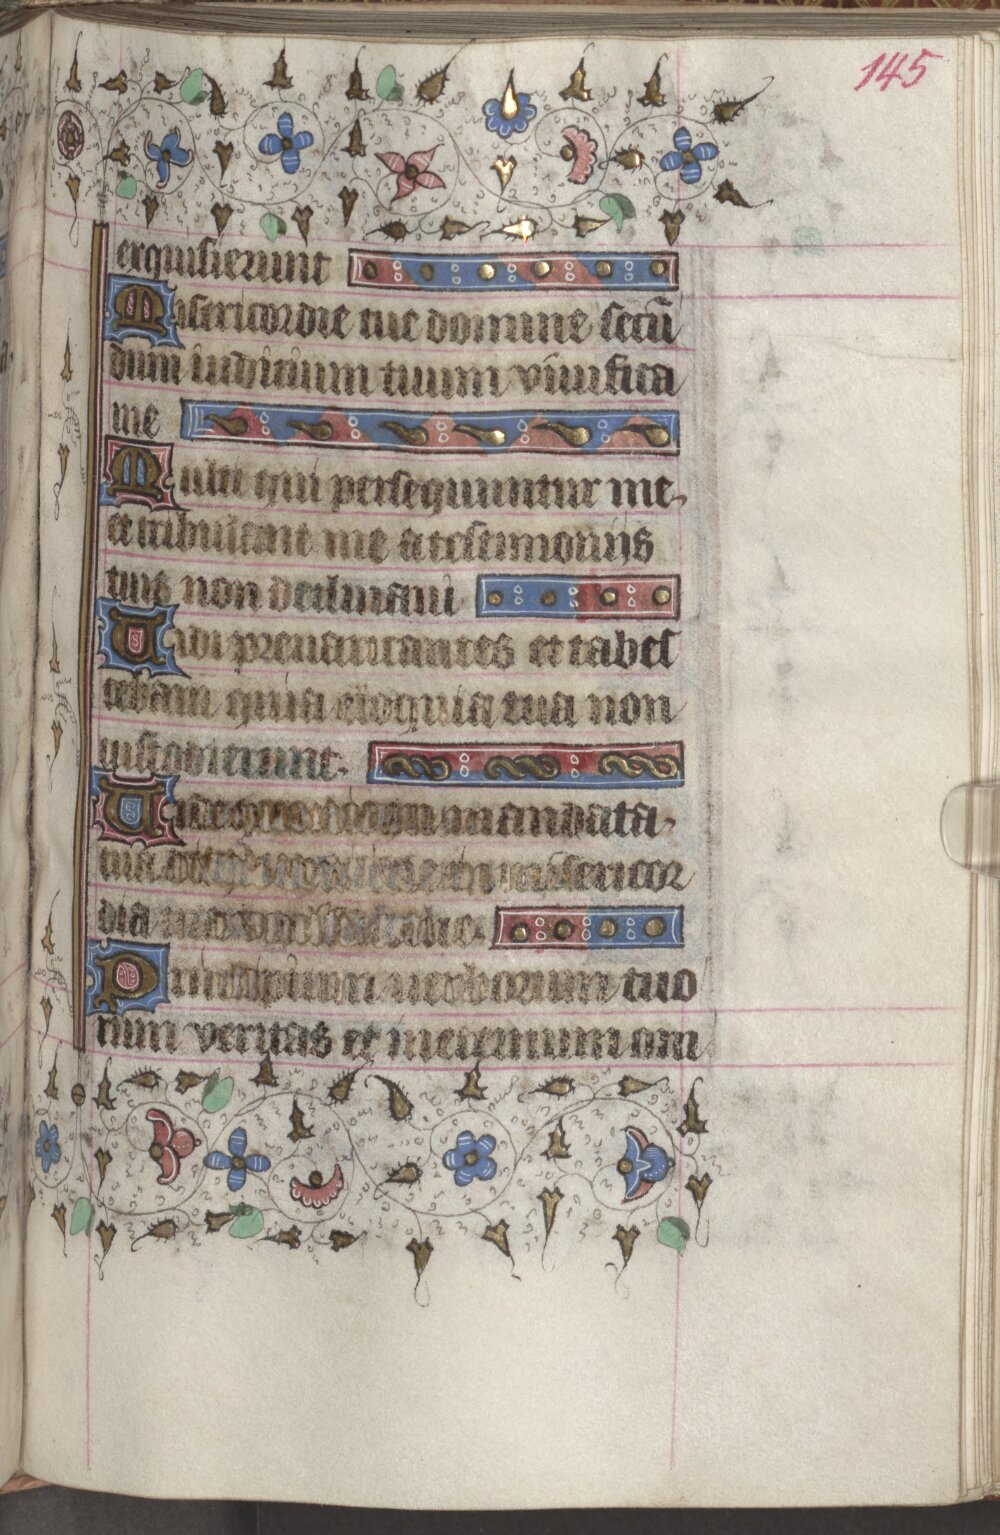 145
exquisierunt
Misericordie tue domine secū
dum iudicium tuum viuifica
me
Multi qui persequuntur me
et tribulant me a testimoniis
tuis non declinaui
Uidi preuaricantes et tabes
cebam quia eloquia tua non
custodierunt.
Uide mandata
tua misericor
dia tua
Principium verborum tuo
rum veritas et ineternum om